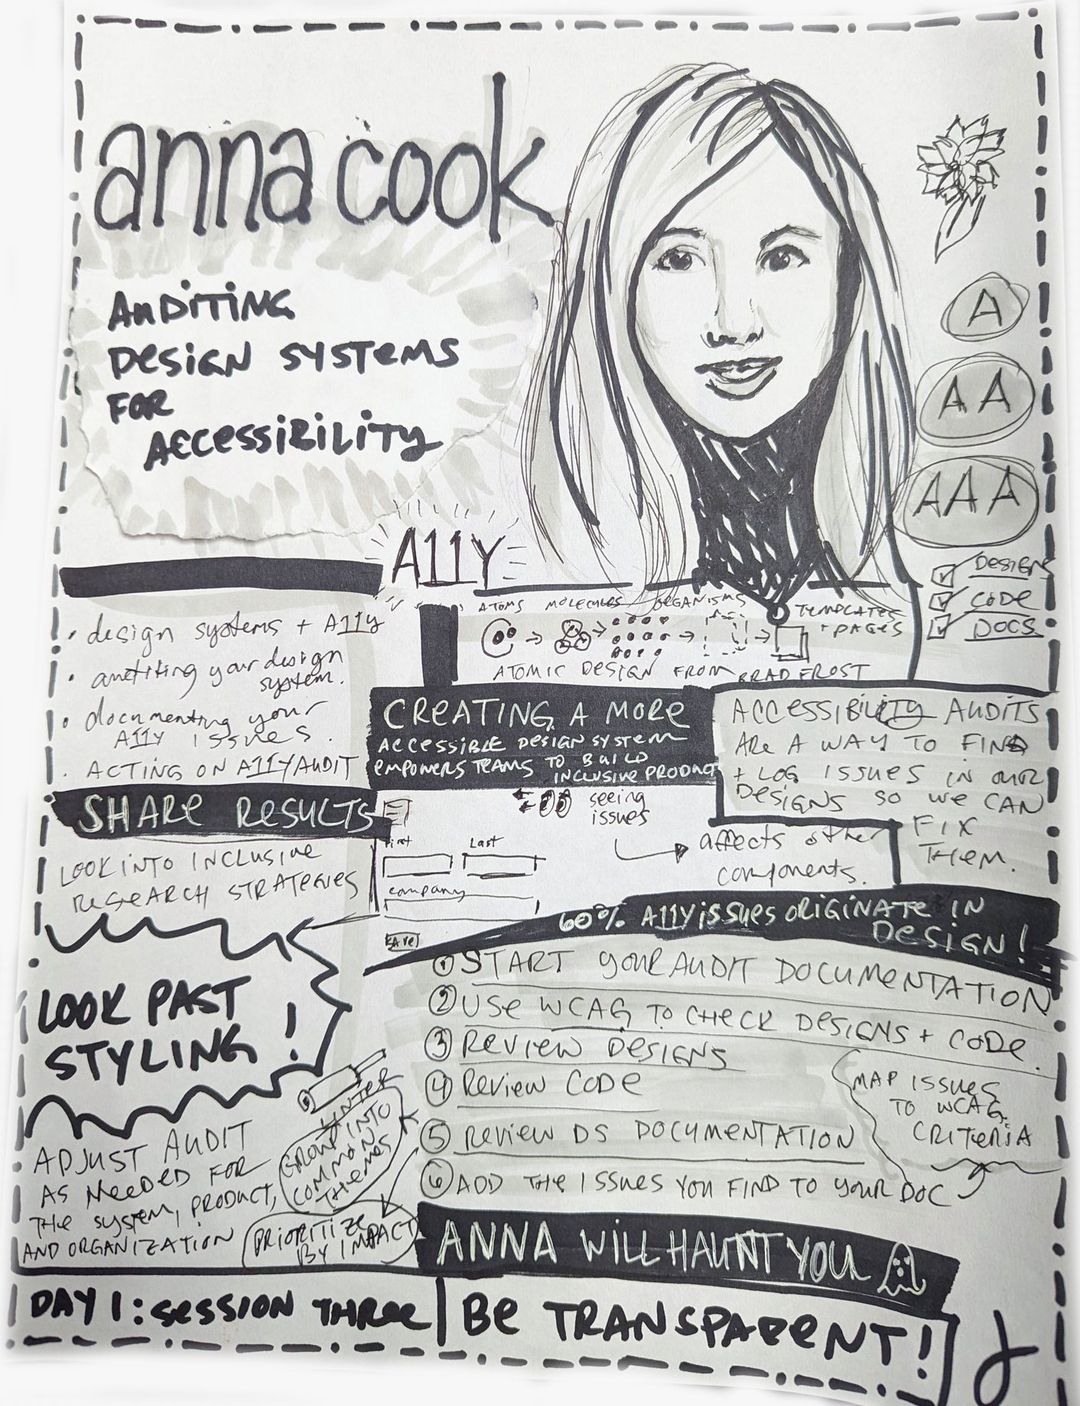 anna cook
AUDITING
DESIGN SYSTEMS
FOR
ACCESSIBILITY
A
AA
AAA
DESIGN
CODE
DOCS
A11Y
ATOMS MOLECULES ORGANISMS
TEMPLATES
+ PAGES
ATOMIC DESIGN FROM BRAD FROST
• design systems + A11Y
• auditing your design
system.
• documenting your
A11Y issues.
• ACTING ON A11Y AUDIT
SHARE RESULTS
LOOK INTO INCLUSIVE
RESEARCH STRATEGIES
CREATING A MORE
ACCESSIBLE DESIGN SYSTEM
EMPOWERS TEAMS TO BUILD
INCLUSIVE PRODUCT
ACCESSIBILITY AUDITS
ARE A WAY TO FIND
+ LOG ISSUES IN OUR
DESIGNS SO WE CAN
FIX
THEM.
seeing
issues
affects other
components.
First Last
company
SAVE
60% A11Y ISSUES ORIGINATE IN
DESIGN!
① START YOUR AUDIT DOCUMENTATION
② USE WCAG TO CHECK DESIGNS + CODE
③ REVIEW DESIGNS
④ REVIEW CODE
⑤ REVIEW DS DOCUMENTATION
⑥ ADD THE ISSUES YOU FIND TO YOUR DOC
MAP ISSUES
TO WCAG
CRITERIA
LOOK PAST
STYLING!
ADJUST AUDIT
AS NEEDED FOR
THE SYSTEM, PRODUCT,
AND ORGANIZATION
GROUP INTO
COMMON
THEMES
PRIORITIZE
BY IMPACT
ANNA WILL HAUNT YOU
DAY 1: SESSION THREE
BE TRANSPARENT!